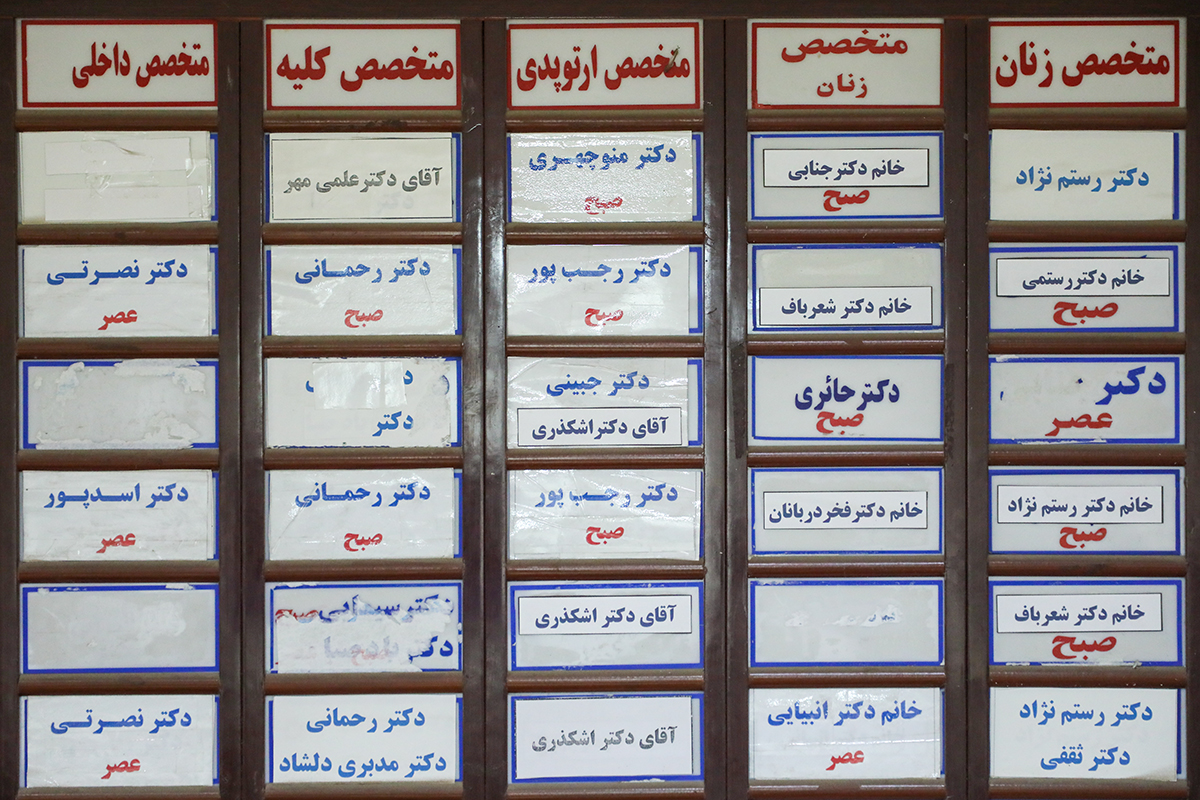 متخصص زنان
متخصص
زنان
متخصص ارتوپدی
متخصص کلیه
متخصص داخلی
دکتر رستم نژاد
خانم دکتر جنابی
صبح
دکتر منوچهری
صبح
آقای دکتر علمی مهر
خانم دکتر رستمی
صبح
خانم دکتر شعرباف
دکتر رجب پور
صبح
دکتر رحمانی
صبح
دکتر نصرتی
عصر
دکتر
عصر
دکتر حائری
صبح
دکتر جبینی
آقای دکتر اشکذری
دکتر
خانم دکتر رستم نژاد
صبح
خانم دکتر فخر دربانان
دکتر رجب پور
صبح
دکتر رحمانی
صبح
دکتر اسدپور
عصر
خانم دکتر شعرباف
صبح
آقای دکتر اشکذری
دکتر سیمایی صبح
دکتر
دکتر رستم نژاد
دکتر ثقفی
خانم دکتر انبیایی
عصر
آقای دکتر اشکذری
دکتر رحمانی
دکتر مدبری دلشاد
دکتر نصرتی
عصر